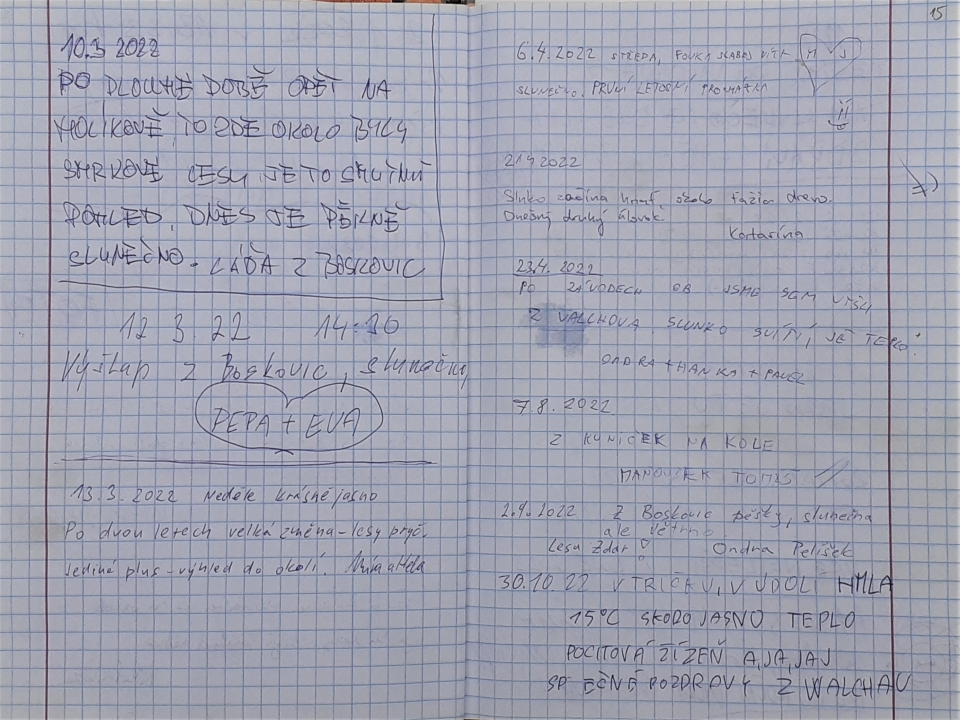 10.3 2022
PO DLOUHÉ DOBĚ OPĚT NA
HOLÍKOVĚ, TO ZDE OKOLO BYLY
SMRKOVÉ LESY JE TO SMUTNÝ
POHLED, DNES JE PĚKNĚ
SLUNEČNO. LÁĎA Z BOSKOVIC
12 3. 22 14:30
Výšlap z Boskovic, slunečný
PEPA + EVA
13.3.2022 Neděle krásně jasno
Po dvou letech velká změna - lesy pryč.
Jediné plus - výhled do okolí.
15
6.4.2022 STŘEDA, FOUKÁ SLABÝ VÍTR. M J
SLUNEČNO, PRVNÍ LETOŠNÍ
21.4 2022
Slnko začína hriať, okolo ťažia drevo.
Dnešný druhý
Katarína
23.4. 2022
PO ZÁVODECH OB JSME SEM VYŠLI
Z VALCHOVA SLUNKO SVÍTÍ, JE TEPLO.
ONDRA + HANKA + PAVEL
7.8.2022
Z KUNIČEK NA KOLE
TOMÁŠ
2.9.2022 Z Boskovic pěšky, slunečno
ale větrno
Lesu Zdar! Ondra Pelíšek
30.10.22 V TRIČKU, V ÚDOLÍ HMLA
15°C SKORO JASNO TEPLO
POCITOVÁ ŽÍZEŇ AJAJAJ
POZDRAVY Z WALCHAU